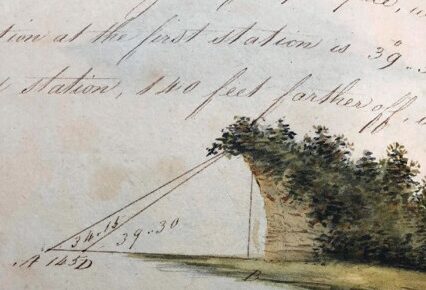 tion at the first station is 39°..
station, 140 feet farther off,
34..15
39..30
A 145 D
B